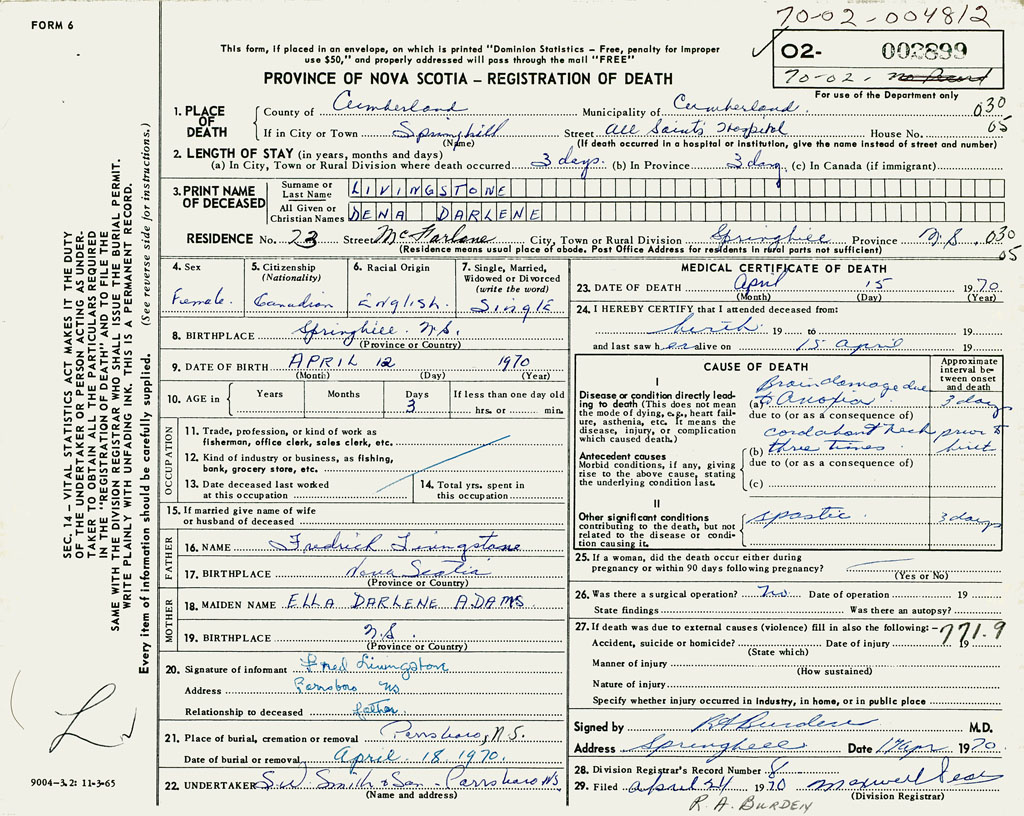 FORM 6
70-02-004812
This form, if placed in an envelope, on which is printed "Dominion Statistics – Free, penalty for improper
use $50," and properly addressed will pass through the mail "FREE"
02- 002899
70-02-
For use of the Department only
PROVINCE OF NOVA SCOTIA – REGISTRATION OF DEATH
1. PLACE OF DEATH
County of Cumberland Municipality of Cumberland. 030
If in City or Town Springhill Street All Saints Hospital House No. 05
(Name) (If death occurred in a hospital or institution, give the name instead of street and number)
2. LENGTH OF STAY (in years, months and days)
(a) In City, Town or Rural Division where death occurred 3 days. (b) In Province 3 day (c) In Canada (if immigrant)
3. PRINT NAME OF DECEASED
Surname or Last Name LIVINGSTONE
All Given or Christian Names DENA DARLENE
RESIDENCE No. 23 Street McFarlane City, Town or Rural Division Springhill Province N.S. 030
(Residence means usual place of abode. Post Office Address for residents in rural parts not sufficient) 05
4. Sex
Female.
5. Citizenship
(Nationality)
Canadian
6. Racial Origin
English.
7. Single, Married,
Widowed or Divorced
(write the word)
Single
8. BIRTHPLACE Springhill N.S.
(Province or Country)
9. DATE OF BIRTH APRIL 12 1970
(Month) (Day) (Year)
10. AGE in Years Months Days If less than one day old
3 hrs. or min.
OCCUPATION
11. Trade, profession, or kind of work as
fisherman, office clerk, sales clerk, etc.
12. Kind of industry or business, as fishing,
bank, grocery store, etc.
13. Date deceased last worked
at this occupation
14. Total yrs. spent in
this occupation
15. If married give name of wife
or husband of deceased
FATHER
16. NAME Fredrick Livingstone
17. BIRTHPLACE Nova Scotia
(Province or Country)
MOTHER
18. MAIDEN NAME ELLA DARLENE ADAMS
19. BIRTHPLACE N.S.
(Province or Country)
20. Signature of informant Fred Livingston
Address Parrsboro NS
Relationship to deceased father
21. Place of burial, cremation or removal Parrsboro, N.S.
Date of burial or removal April 18 1970.
22. UNDERTAKER Smith & Son Parrsboro NS
(Name and address)
MEDICAL CERTIFICATE OF DEATH
23. DATE OF DEATH April 15 1970
(Month) (Day) (Year)
24. I HEREBY CERTIFY that I attended deceased from:
birth 19 to 19
and last saw her alive on 15 April 19
CAUSE OF DEATH
Approximate
interval be-
tween onset
and death
I
Disease or condition directly lead-
ing to death (This does not mean
the mode of dying, e.g., heart fail-
ure, asthenia, etc. It means the
disease, injury, or complication
which caused death.)
Brain damage due
(a) to Anoxia 3 days
due to (or as a consequence of)
cord about neck prior to
(b) three times birth
due to (or as a consequence of)
(c)
Antecedent causes
Morbid conditions, if any, giving
rise to the above cause, stating
the underlying condition last.
II
Other significant conditions
contributing to the death, but not
related to the disease or condi-
tion causing it.
spastic 3 days
25. If a woman, did the death occur either during
pregnancy or within 90 days following pregnancy?
(Yes or No)
26. Was there a surgical operation? No Date of operation 19
State findings Was there an autopsy?
27. If death was due to external causes (violence) fill in also the following:– 771.9
Accident, suicide or homicide? Date of injury 19
(State which)
Manner of injury
(How sustained)
Nature of injury
Specify whether injury occurred in industry, in home, or in public place
Signed by RA Burden M.D.
Address Springhill Date 17 Apr 1970
28. Division Registrar's Record Number 8
29. Filed April 24 1970 Maxwell
(Division Registrar)
R.A. BURDEN
SEC. 14 – VITAL STATISTICS ACT MAKES IT THE DUTY
OF THE UNDERTAKER OR PERSON ACTING AS UNDER-
TAKER TO OBTAIN ALL THE PARTICULARS REQUIRED
IN THE "REGISTRATION OF DEATH" AND TO FILE THE
SAME WITH THE DIVISION REGISTRAR WHO SHALL ISSUE THE BURIAL PERMIT.
WRITE PLAINLY WITH UNFADING INK. THIS IS A PERMANENT RECORD.
Every item of information should be carefully supplied. (See reverse side for instructions.)
9004-3.2: 11-3-65